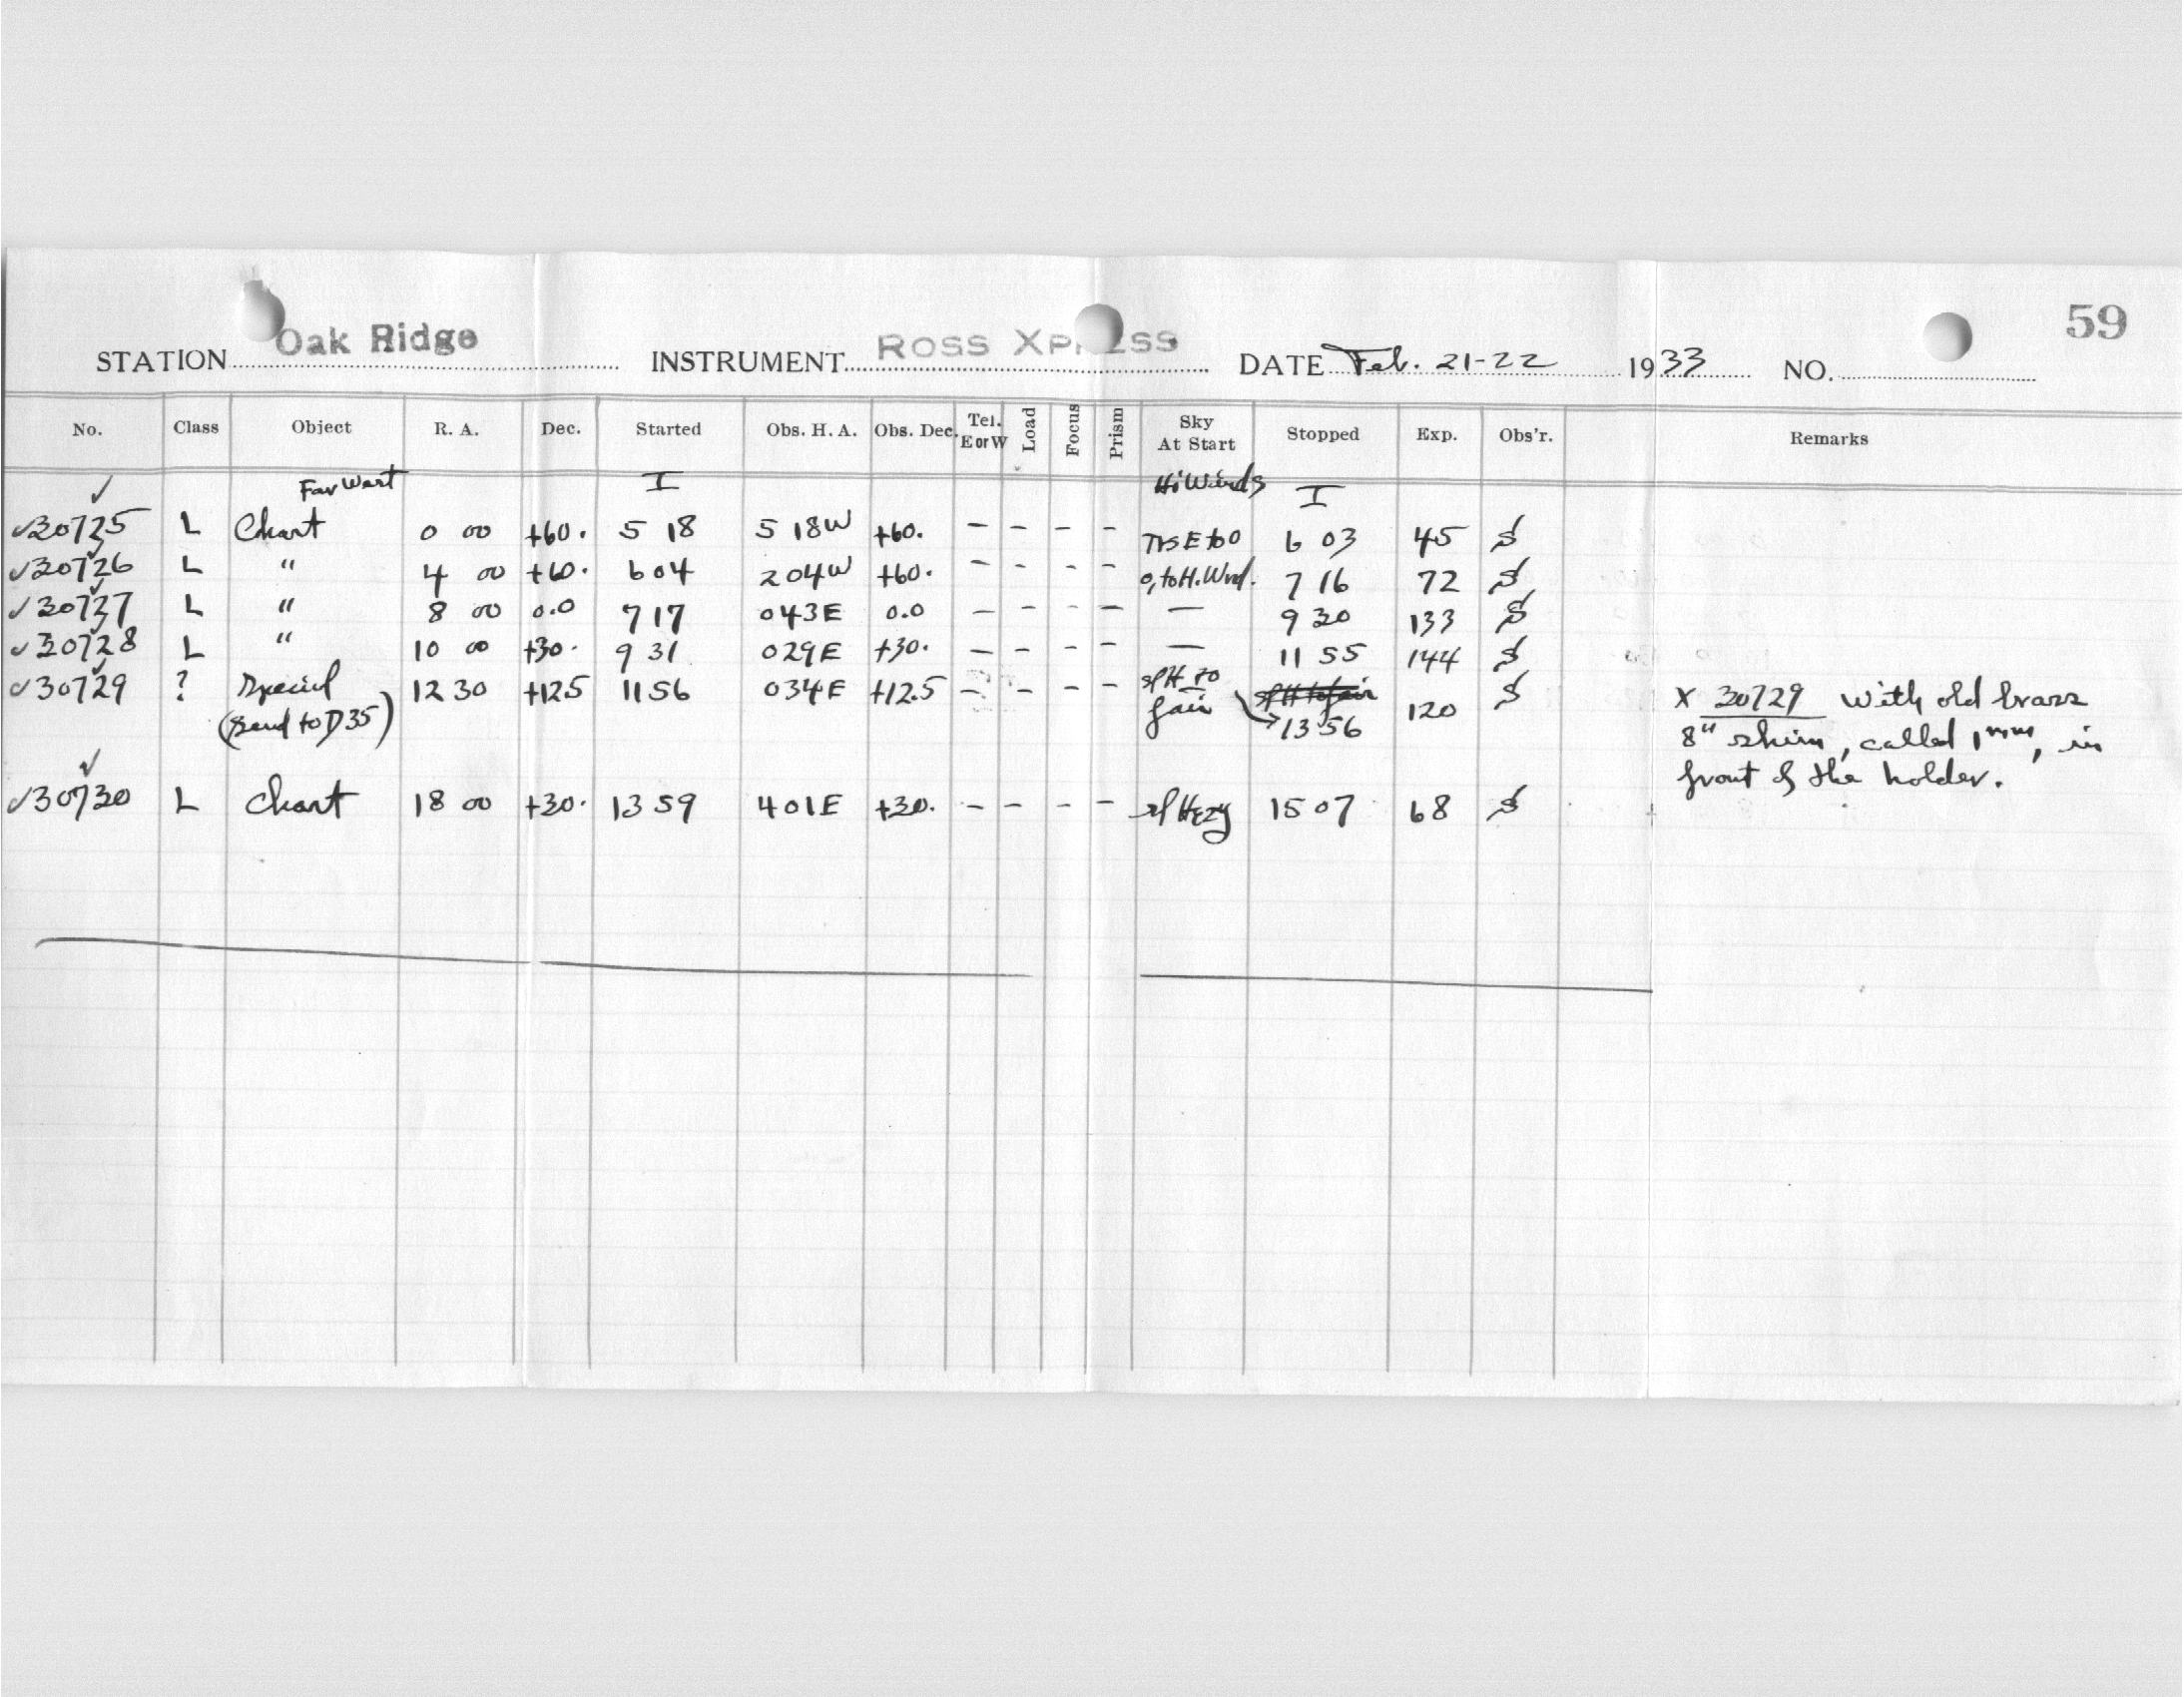 59
STATION Oak Ridge INSTRUMENT ROSS XP ESS DATE Feb. 21-22 1933 NO.
No. Class Object R. A. Dec. Started Obs. H. A. Obs. Dec. Tel. E or W Load Focus Prism Sky At Start Stopped Exp. Obs'r. Remarks
✓ Far West I Hi Winds I
✓30725 L Chart 0 00 +60. 5 18 5 18W +60. - - - - E to 0 6 03 45 S
✓30726 L " 4 00 +60. 6 04 2 04W +60. - - - - 0, to H. Wnd. 7 16 72 S
✓30727 L " 8 00 0.0 7 17 0 43E 0.0 - - - - — 9 30 133 S
✓30728 L " 10 00 +30. 9 31 0 29E +30. - - - - — 11 55 144 S
✓30729 ? Special 12 30 +12.5 11 56 0 34E +12.5 - - - - slH to fair 13 56 120 S
(Send to D35)
X 30729 with old brass
8" shim, called 1mm, in
front of the holder.
✓30730 L Chart 18 00 +30. 13 59 4 01E +30. - - - - sl Hezy 15 07 68 S